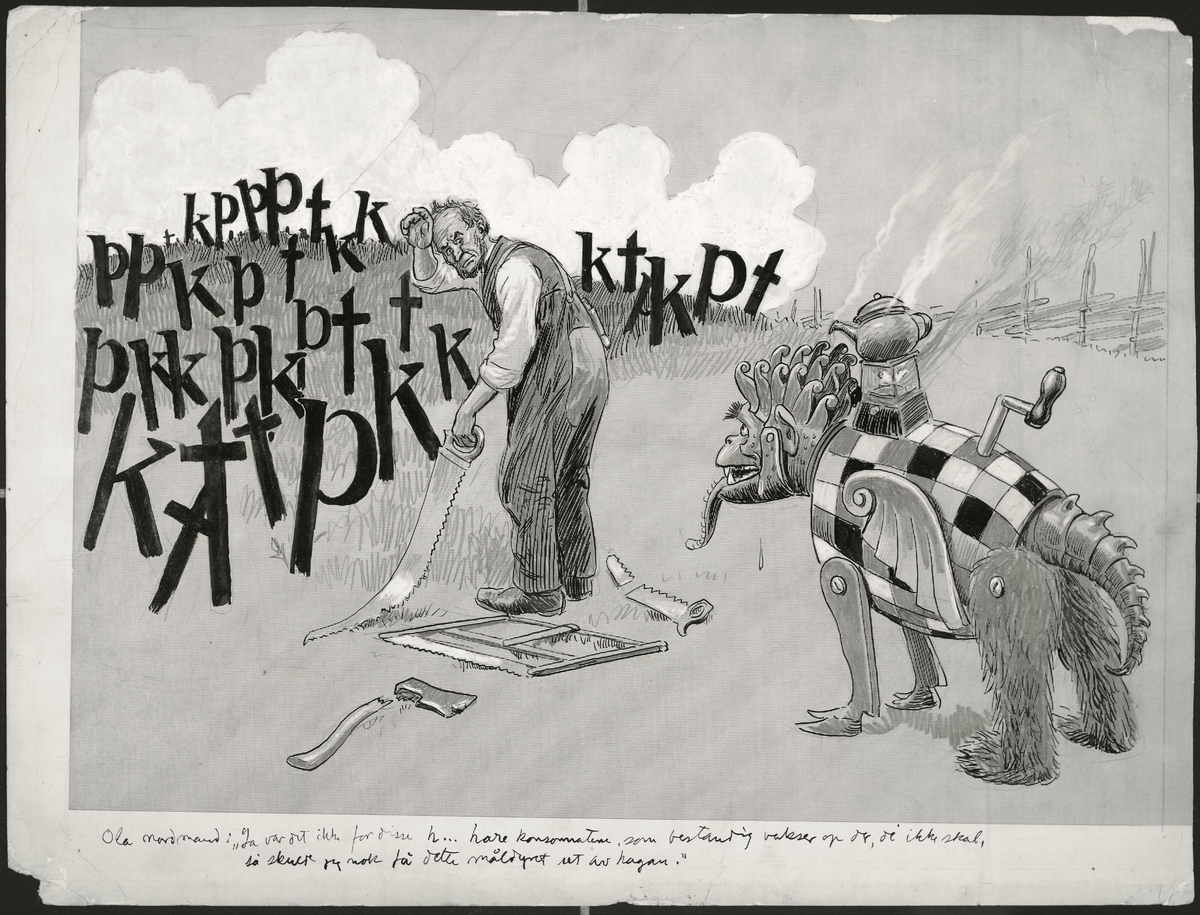 kppptkk
ppkptk
ktkkpt
ptt
pkkpkkk
kttpk
Ola nordmand: „Ja var det ikke for disse h... hare konsonnatene, som bestandig vakser op der, de ikke skal,
så skulde jeg nok få dette måldyret ut av hagan."